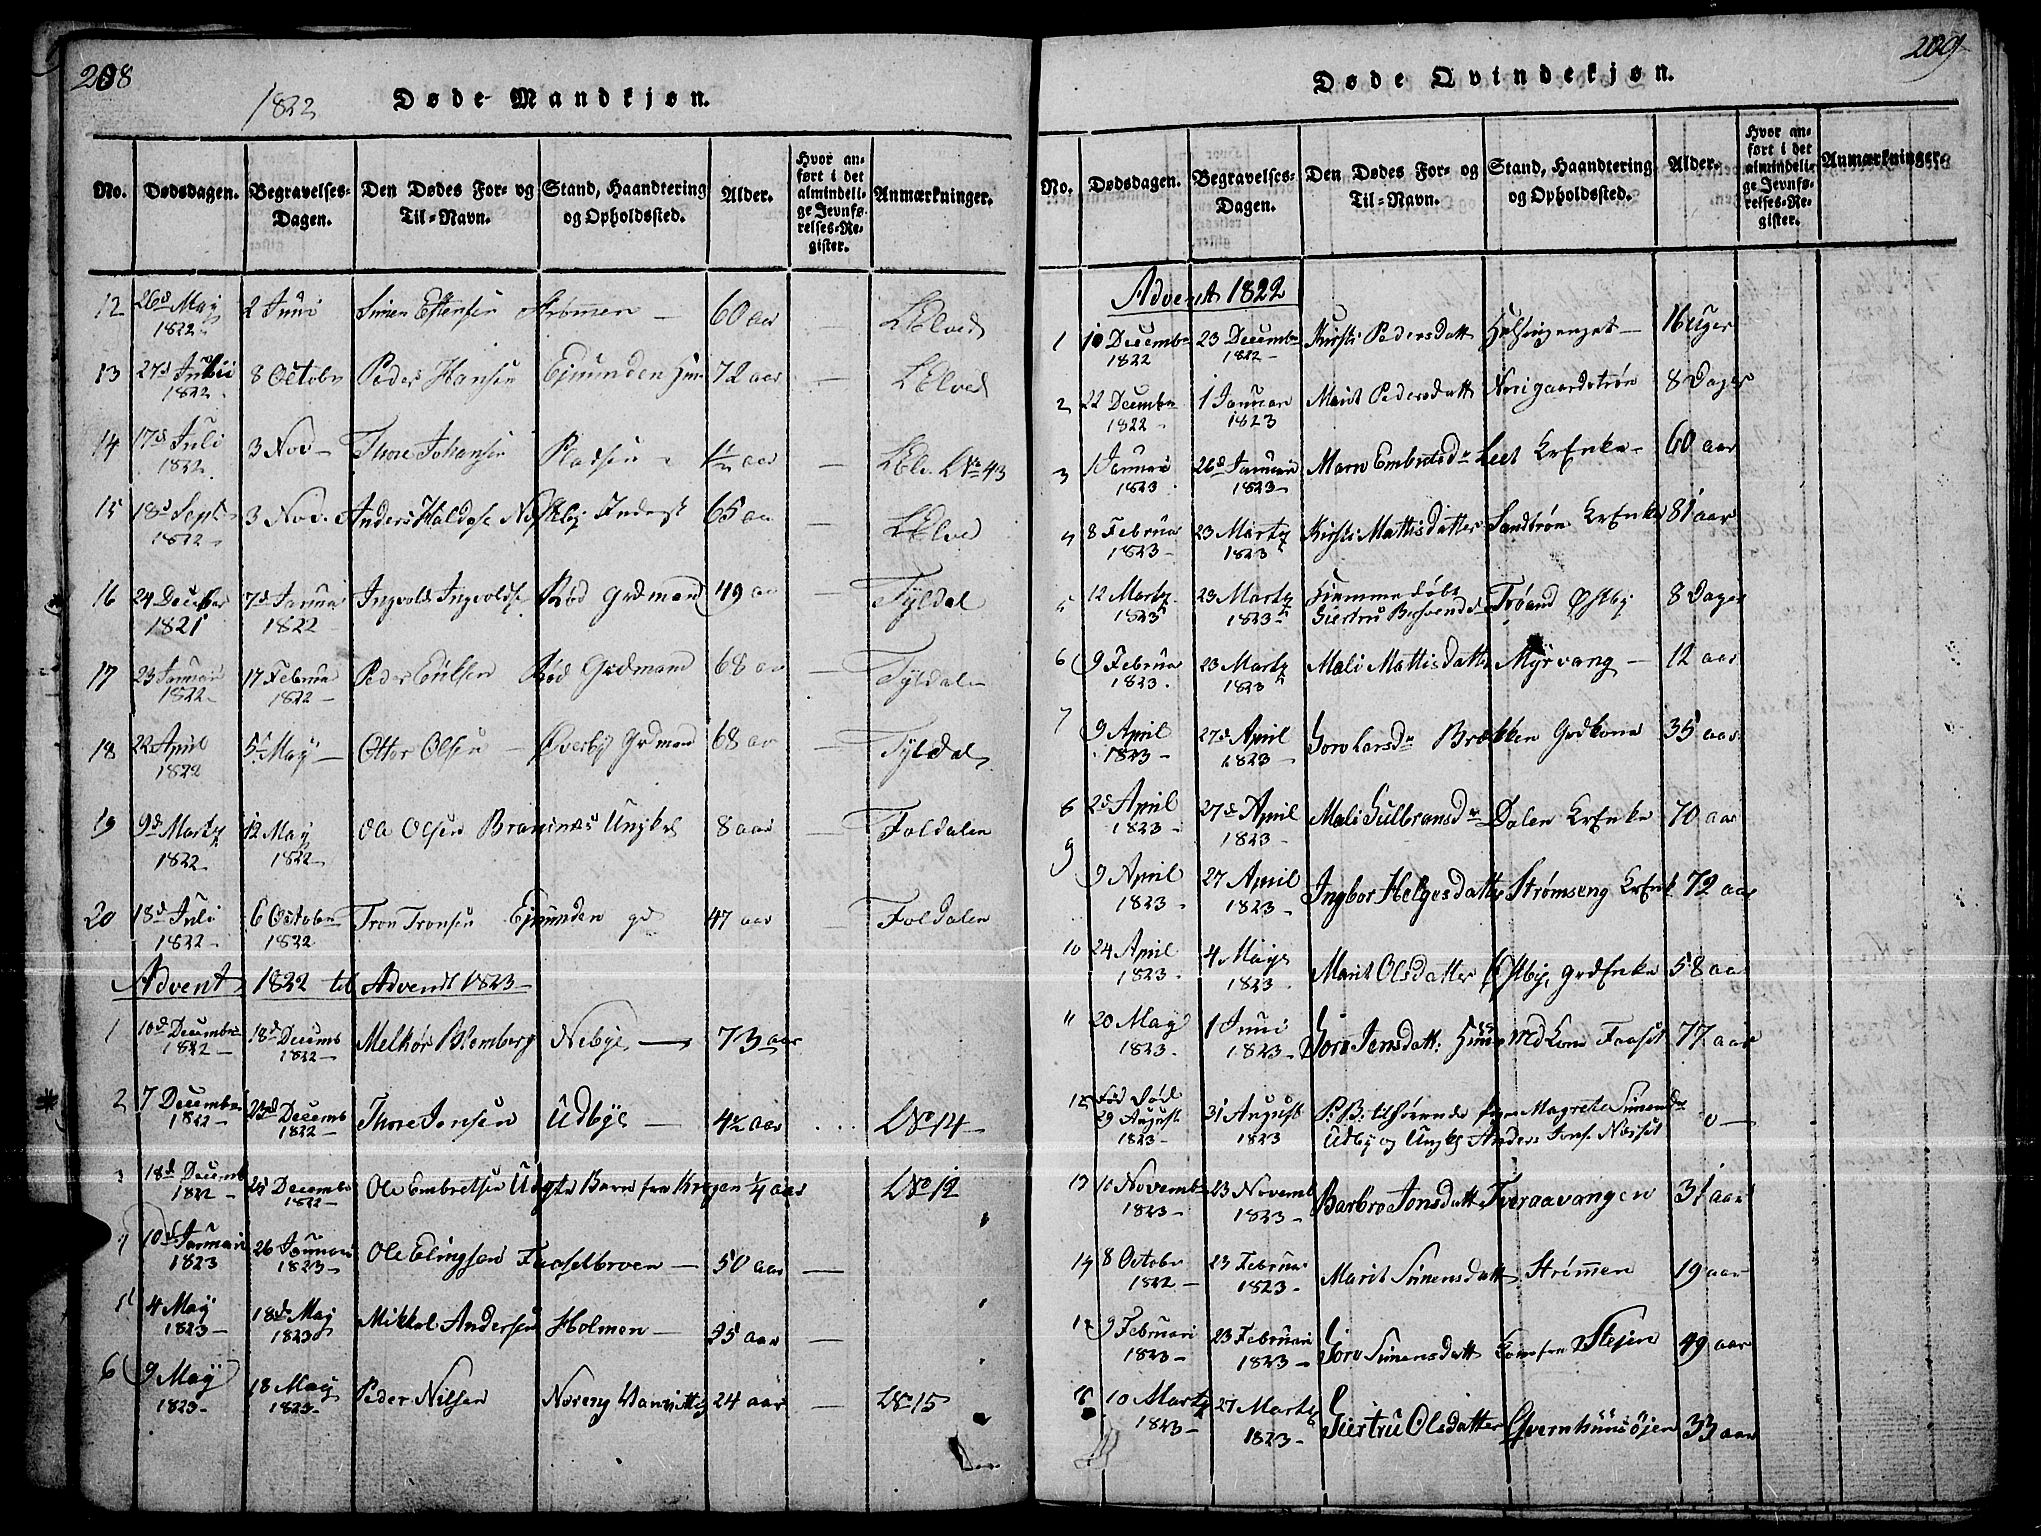 208
1822
Døde Mandkjøn.
No. Dødsdagen. Begravelses-Dagen. Den Dødes For- og Til-Navn. Stand, Haandtering og Opholdssted. Alder. Hvor anført i det almindelige Jevnførelses-Register. Anmærkninger.
12 26d May 1822 2 Juni Simen Estensen Strømmen — 60 aar — LElved
13 27d 1822 8 Octobr Peder Hansen Ejmunden 72 aar — LElved
14 17d Juli 1822 3 Nov — Thore Johansen aar — LElv. No 43
15 18d Sept 1822 3 Nov. Anders 65 aar — LElved
16 24 Decembr 1821 7d Januar 1822 Ingvold Ingvoldsen Rød Grdmand 49 aar — Tyldal
17 23 Januari 1822 17 Februar 1822 Peder Rød Grdmand 68 aar — Tyldalen
18 22 April 1822 5 May — Otter Olsen — Øverby Grdmand 68 aar — Tyldal
19 9d Marty 1822 12 May 1822 Ole Olsen Brænnæs Ungkarl 8 aar — Foldalen
20 18d Juli 1822 6 Octobr 1822 Tron Tronsen Ejmunden gd 47 aar — Foldalen
Advent 1822 til Advendt 1823
1 10d Decembr 1822 18d Decemb 1822 Melkør Blomberg Nebye — 73 aar
2 7 Decembr 1822 23d Decemb 1822 Thore Jonsen Udbye — 4½ aar No 14
3 18d Decemb 1822 Decembr 1822 Ole Embretsen Barn fra ¼ aar No 12
4 10d Januari 1823 26 Januari 1823 Ole Elingsen Faasetbroen — 50 aar —
5 4 May 1823 18d May 1823 Mikkel Andersen Holmen — 35 aar —
6 9 May 1823 18 May 1823 Peder Nilsen Noreng Vanvittig 24 aar — No 15
209
Døde Qvindekjøn.
No. Dødsdagen. Begravelses-Dagen. Den Dødes For- og Til-Navn. Stand, Haandtering og Opholdssted. Alder. Hvor anført i det almindelige Jevnførelses-Register. Anmærkninger.
Advent 1822
1 10 Decembr 1822 23 Decembr 1822 Kirsti Pedersdatt Helsingenget — 16 uger
2 22 Decembr 1822 1 Januari 1823 Marit Pedersdatt Norigaardstrøn 8 Dage
3 1 Januari 1823 26d Januari 1823 Maren Embretsdr Leet Enke — 60 aar
4 8 Februar 1823 23 Marty 1823 Kirsti Mattisdatter Sandtrøn Enke 81 aar
5 12 Marty 1823 23 Marty 1823 Hiemmedøbt Giertru Trøand Østby 8 Dage
6 9 Februar 1823 23 Marty 1823 Mali Mattisdatter Myrvang — 12 aar
7 9 April 1823 27d April 1823 Goro Larsdr Brækken Grdkone 35 aar
8 2d April 1823 27d April 1823 Mali Gulbransdr Dalen Enke 70 aar
9 9 April 1823 27 April 1823 Ingbor Helgesdatter Strømseng 72 aar
10 24 April 1823 4 May 1823 Marit Olsdatter Østby, grdEnke 58 aar
11 20 May 1823 1 Juni 1823 Goro Jensdatt: Kone Faaset 77 aar
12 Død 29 August 1823 31 August 1823 P: B: tilhørende pigen Magrete Simensdr Udby og Ungkl Anders Næset 0 —
13 10 Novembr 1823 23 Novemb 1823 Barbro Jonsdatt Tveraavangen 31 aar
14 8 October 1822 23 Februar 1823 Marit Simensdatt Strømmen 19 aar
9 Februari 1823 23 Februari 1823 Goro Simensdatt Kone fra Stejen 49 aar
10 Marty 1823 27 Marty 1823 Giertru Olsdatter Qvernhuusøjen 33 aar